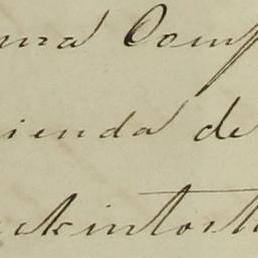 una Comp
ienda de
ckintosh